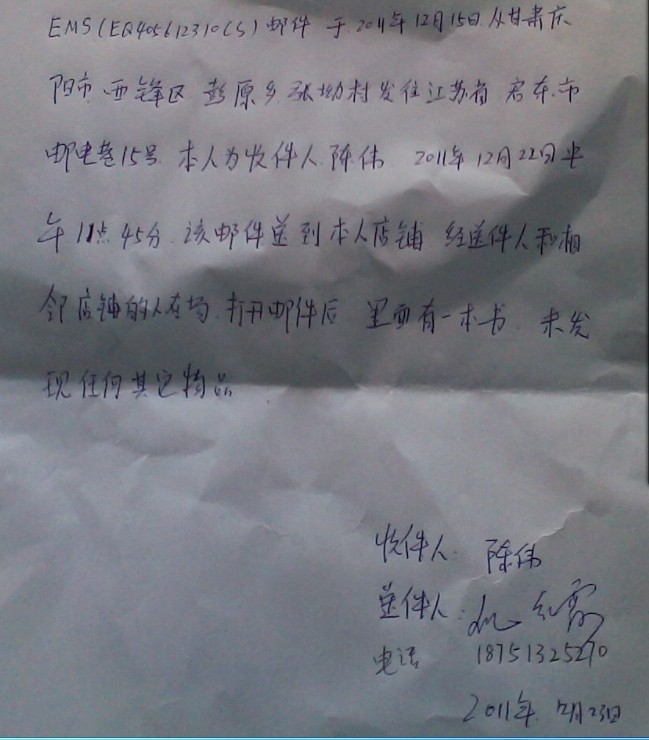 EMS(EQ405612310CS)邮件 于2011年12月15日从甘肃庆
阳市西锋区 彭原乡张坳村发往江苏省启东市
邮电巷15号 本人为收件人陈伟 2011年12月22日上
午11点45分 该邮件送到本人店铺 经送件人和相
邻店铺的人在场 打开邮件后 里面有一本书 未发
现任何其它物品
收件人: 陈伟
送件人:
电话 18751325270
2011年12月23日